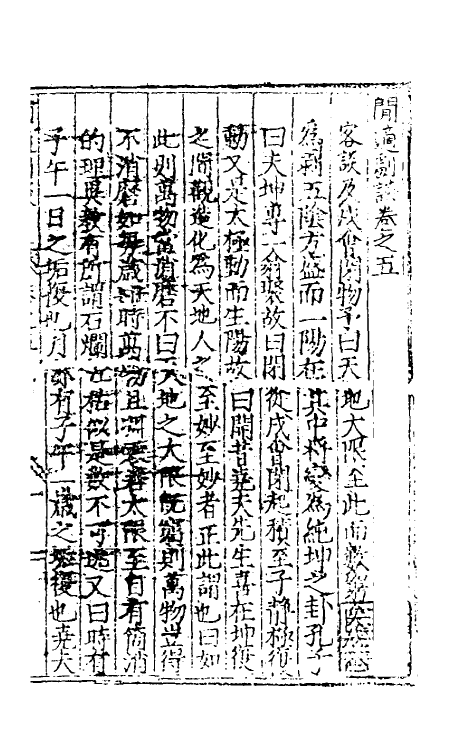 閒適劇談卷之五
客談及戌會閉物予曰天地大限至此而數窮
為剥五陰方盛而一陽在其中將變為純坤之卦孔子
曰夫坤專一翕聚故曰閉從戌會閉起積至子靜極復
動又是太極動而生陽故曰開昔堯夫先生喜在坤復
之間觀造化為天地人之至妙至妙者正此謂也曰如
此則萬物當消磨不曰天地之大限既窮則萬物豈得
不消磨如每歲時萬物且大限至自有箇消
的理與教有所謂石爛是數不可逃又曰時有
子午一日之垢復也月亦有子午一歲之垢復也堯夫